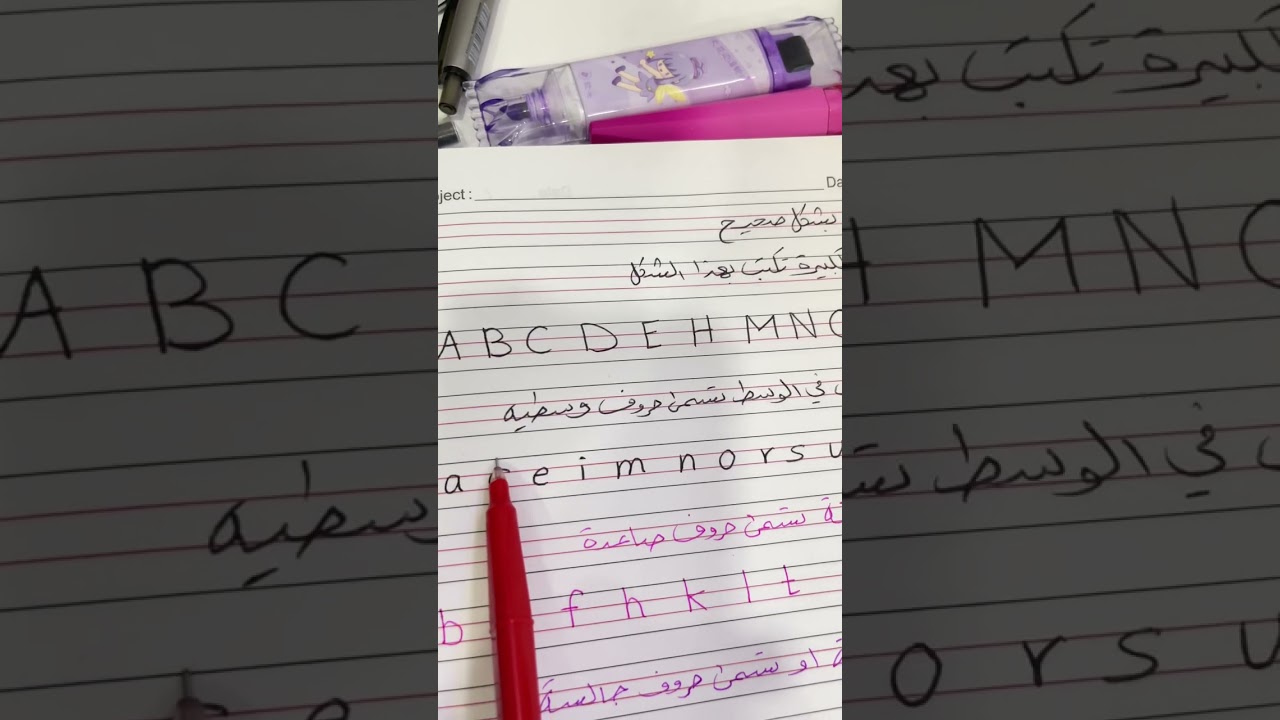 ject : Da
بشكل صحيح
كبيرة تكتب بهذا الشكل
A B C D E H M N O
في الوسط تسمى حروف وسطيه
a c e i m n o r s u
تسمى حروف صاعدة
b f h k l t
او تسمى حروف جالسة